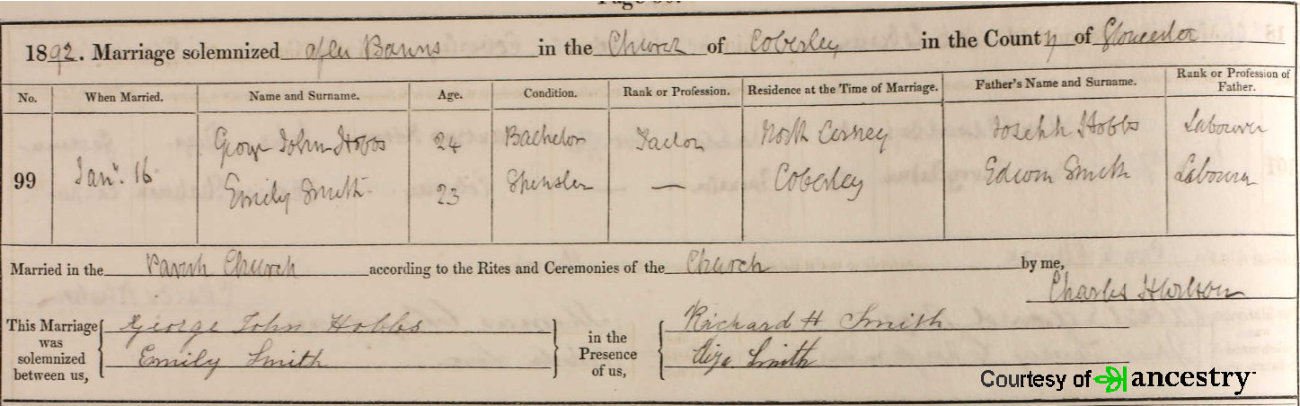 1892. Marriage solemnized after Banns in the Church of Coberley in the County of Gloucester
No. When Married. Name and Surname. Age. Condition. Rank or Profession. Residence at the Time of Marriage. Father's Name and Surname. Rank or Profession of Father.
99 Jany. 16 George John Hobbs 24 Bachelor North Cerney Joseph Hobbs Labourer
Emily Smith 23 Spinster — Coberley Edwin Smith Labourer
Married in the Parish Church according to the Rites and Ceremonies of the Church by me,
Charles
This Marriage was solemnized between us, George John Hobbs in the Presence of us, Richard H Smith
Emily Smith Eliza Smith
Courtesy of ancestry